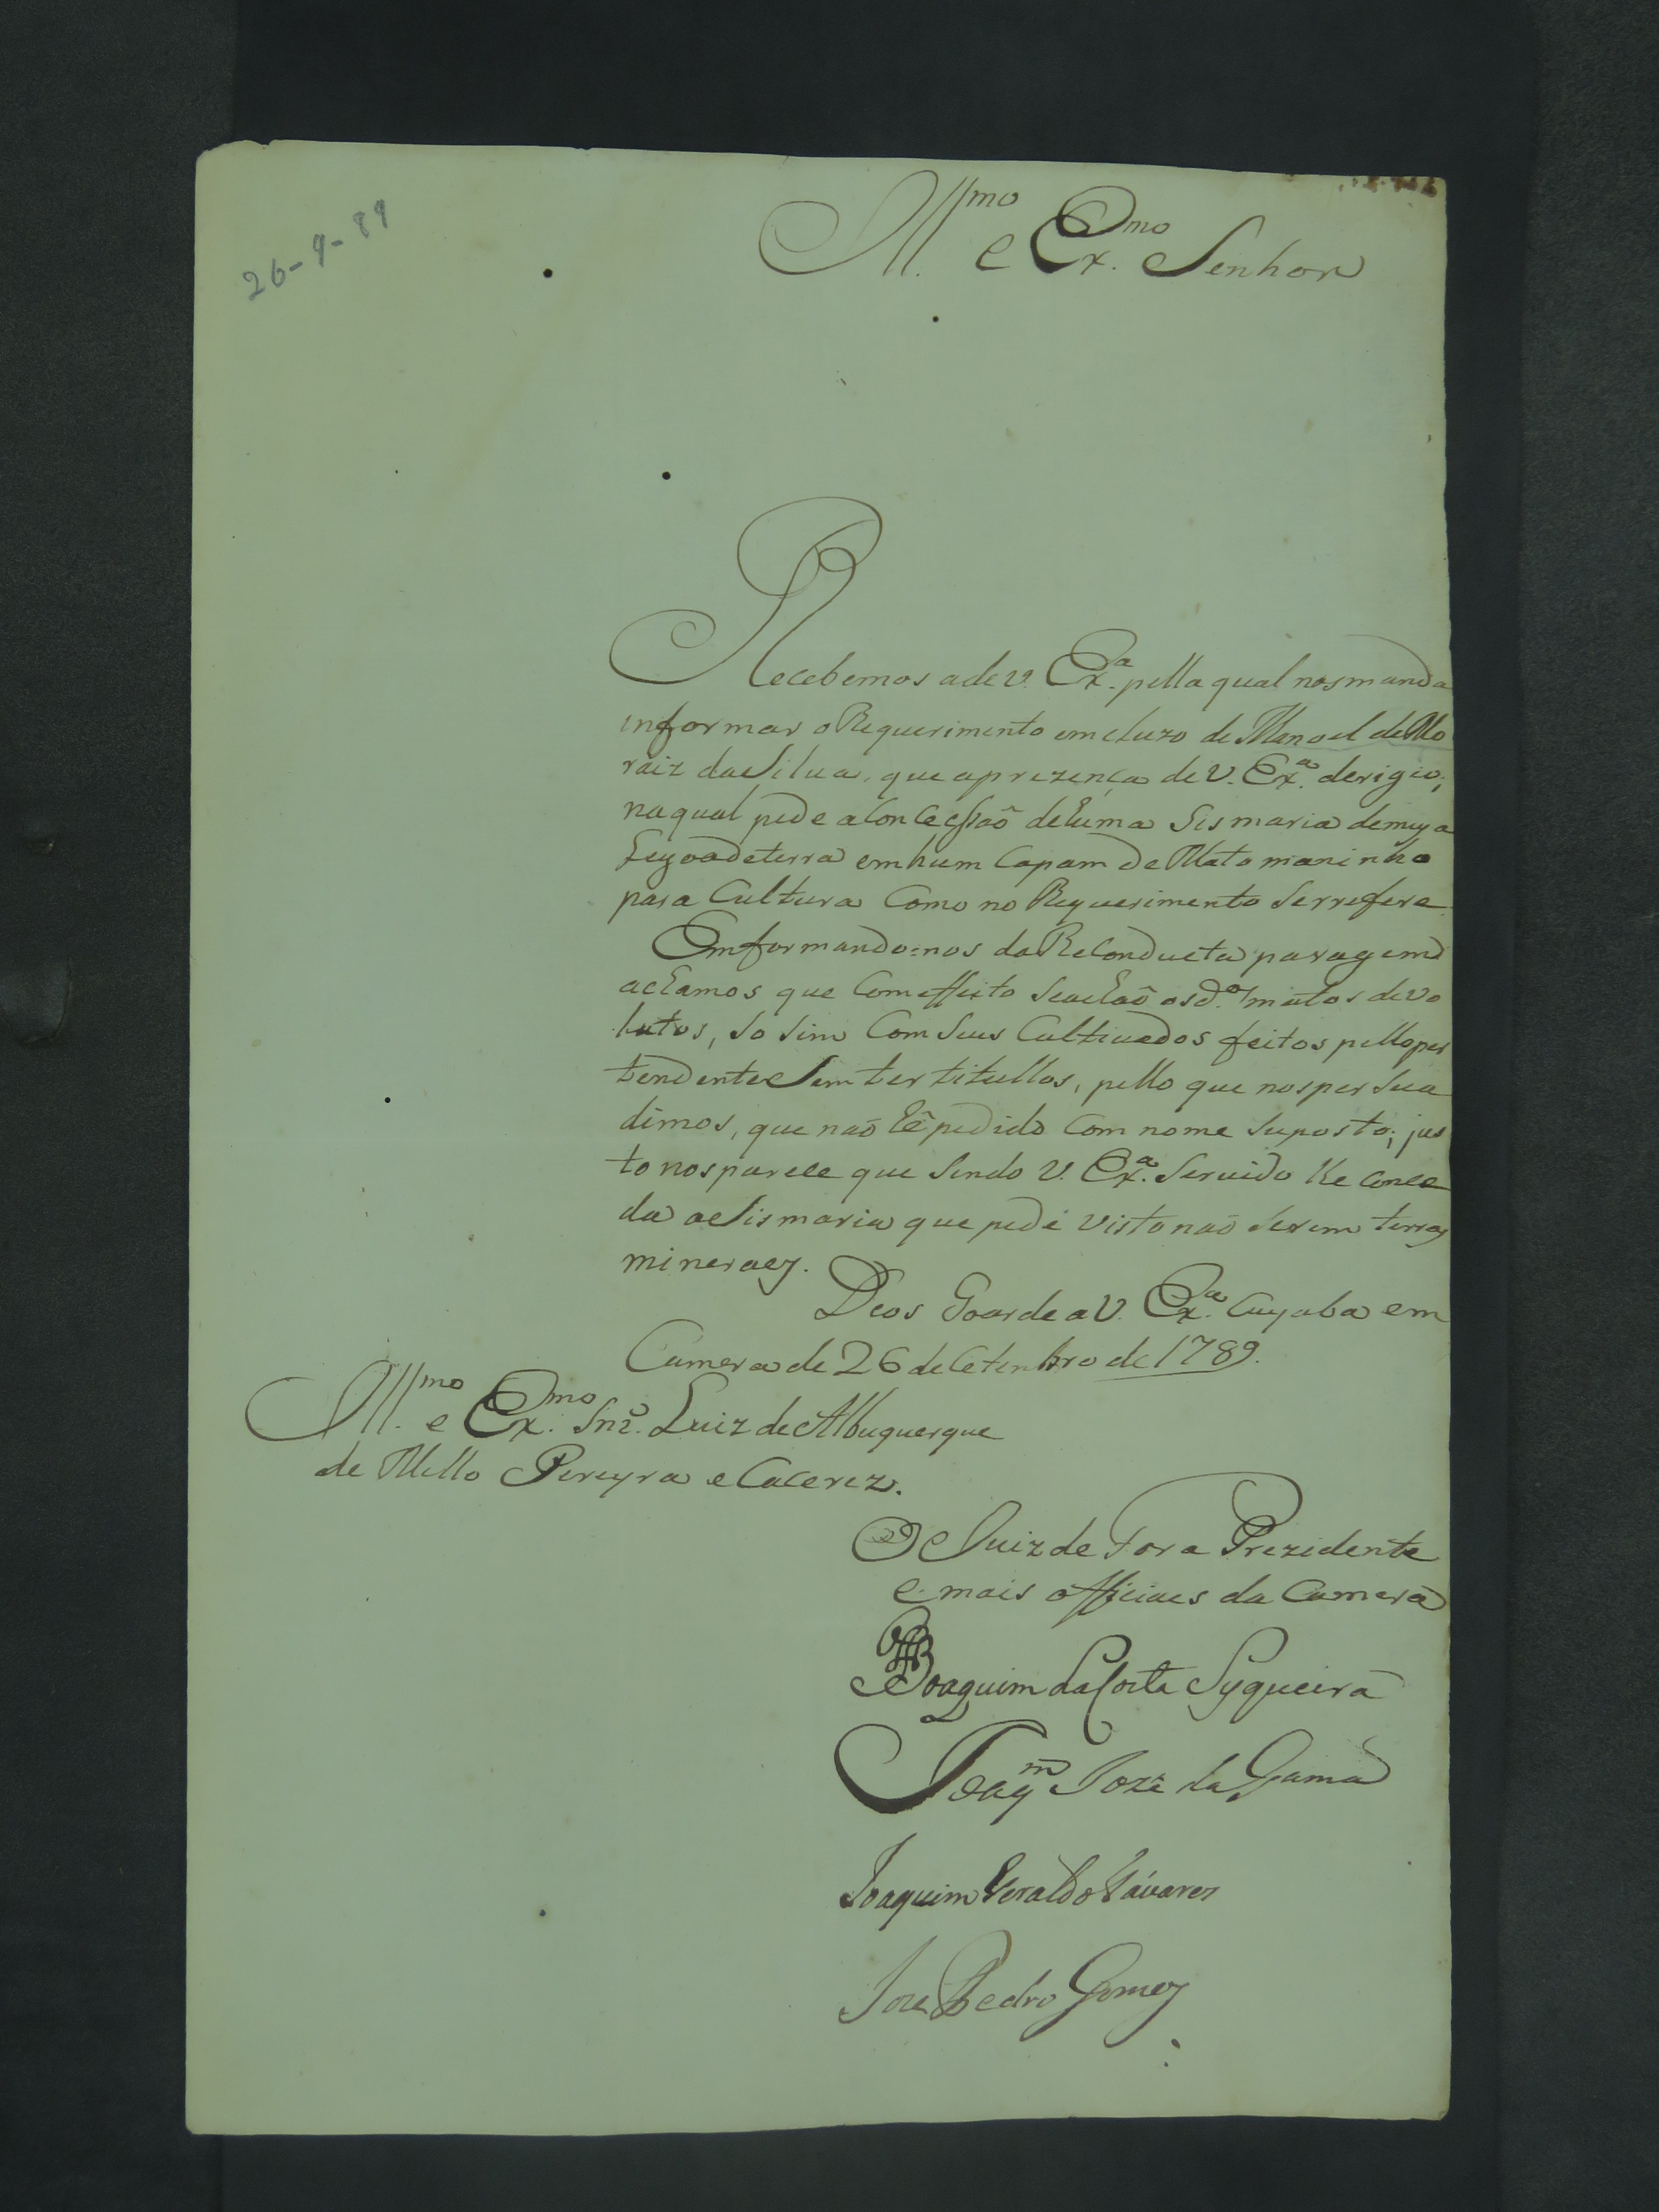 26-9-89
Ill.mo e Ex.mo Senhor
Recebemos a de V. Ex.a pella qual nos manda
informar o Requerimento emcluzo de Manoel de Mo
raiz da Silva, que aprezença de V. Ex.a derigio,
na qual pede a Concessaõ de huma Sismaria de meya
Legoa de terra em hum Capam de Mato maninho
para Cultura Como no Requerimento Se rrefere
Emformando=nos da Reconducta paragem
achamos que Com effeito Se achaõ os d.os matos devo
lutos, So Sim Com Suas Cultivados feitos pello per
tendente Sem ter titullos, pello que nos persua
dimos, que naõ hê pedido Com nome Suposto; jus
to nos parece que Sendo V. Ex.a Servido lhe Conce
da a Sismaria que pede visto naõ Serem terras
mineraes.
Deos Goarde a V. Ex.a Cuyaba em
Camera de 26 de Cetembro de 1789.
Ill.mo e Ex.mo Snr. Luiz de Albuquerque
de Mello Pereyra e Cacerez.
O Juiz de Fora Prezidente
e mais officiaes da Camera
Joaquim da Costa Syqueira
Joaqm Joze da Gama
Joaquim Geraldo Tavares
Joze Pedro Gomes